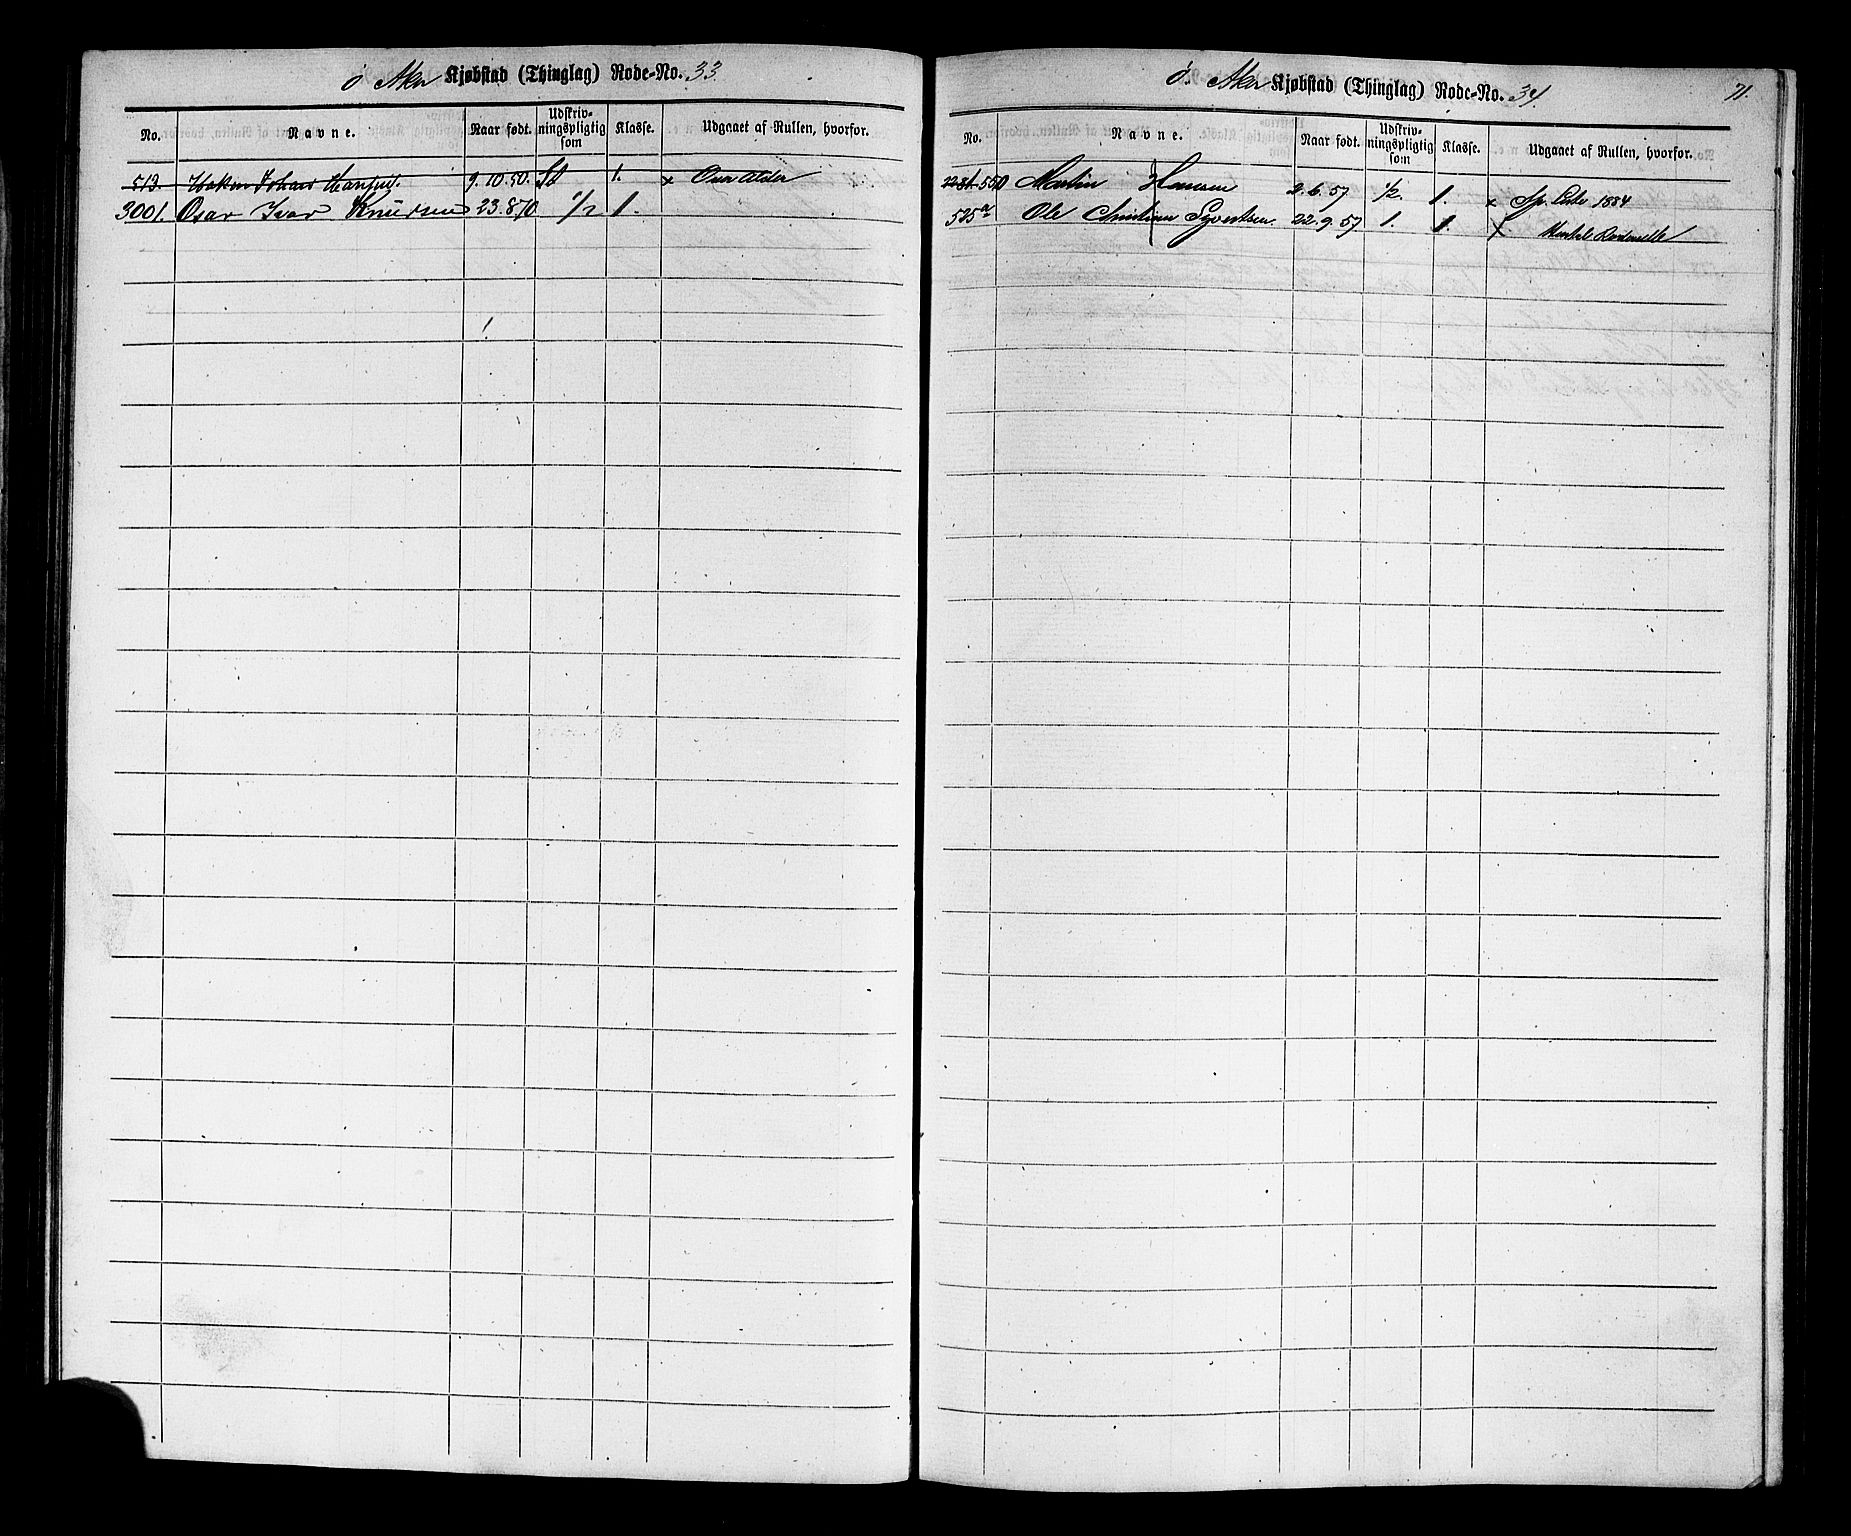 ø Aker Kjøbstad (Thinglag) Rode-No. 33
No. Navne. Naar født. Udskrivningspligtig som Klasse. Udgaaet af Rullen, hvorfor.
513. Hakon Johan 9.10.50. St 1. x Overalder
3001. Oscar Ivar Knudsen 23.8.70 1/2 1.
71.
ø. Aker Kjøbstad (Thinglag) Rode-No. 34
No. Navne. Naar født. Udskrivningspligtig som Klasse. Udgaaet af Rullen, hvorfor.
550 Martin Hansen 2.6.57 1/2. 1. x Sp. Liste 1884
525a Ole Christian Syvertsen 22.9.57 1. 1. x